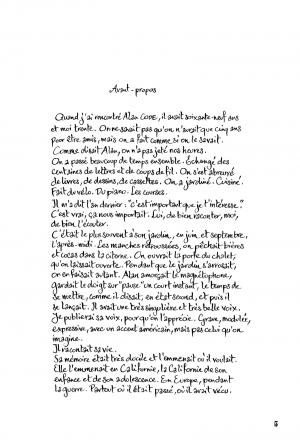 Avant-propos
Quand j'ai rencontré Alan COPE, il avait soixante-neuf ans
et moi trente. On ne savait pas qu'on n'avait que cinq ans
pour être amis, mais on a fait comme si on le savait.
Comme disait Alan, on n'a pas jeté nos heures.
On a passé beaucoup de temps ensemble. Échangé des
centaines de lettres et de coups de fil. On s'est abreuvé
de livres, de dessins, de cassettes. On a jardiné. Cuisiné.
Fait du vélo. Du piano. Les courses.
Il m'a dit l'an dernier : "c'est important que je t'intéresse."
C'est vrai, ça nous importait. Lui, de bien raconter, moi,
de bien l'écouter.
C'était le plus souvent à son jardin, en juin et septembre,
l'après-midi. Les manches retroussées, on pêchait bières
et cocas dans la citerne. On ouvrait la porte du chalet,
qu'on laissait ouverte. Pendant que le jardin s'arrosait,
on en faisait autant. Alan amorçait le magnétophone,
gardait le doigt sur "pause" un court instant, le temps de
se mettre, comme il disait, en état second, et puis il
se lançait. Il avait une très singulière et très belle voix.
Je publierai sa voix, pour qu'on l'apprécie. Grave, modulée,
expressive, avec un accent américain, mais pas celui qu'on
imagine.
Il racontait sa vie.
Sa mémoire était très docile et l'emmenait où il voulait.
Elle l'emmenait en Californie, la Californie de son
enfance et de son adolescence. En Europe, pendant
la guerre. Partout où il était passé, où il avait vécu.
5